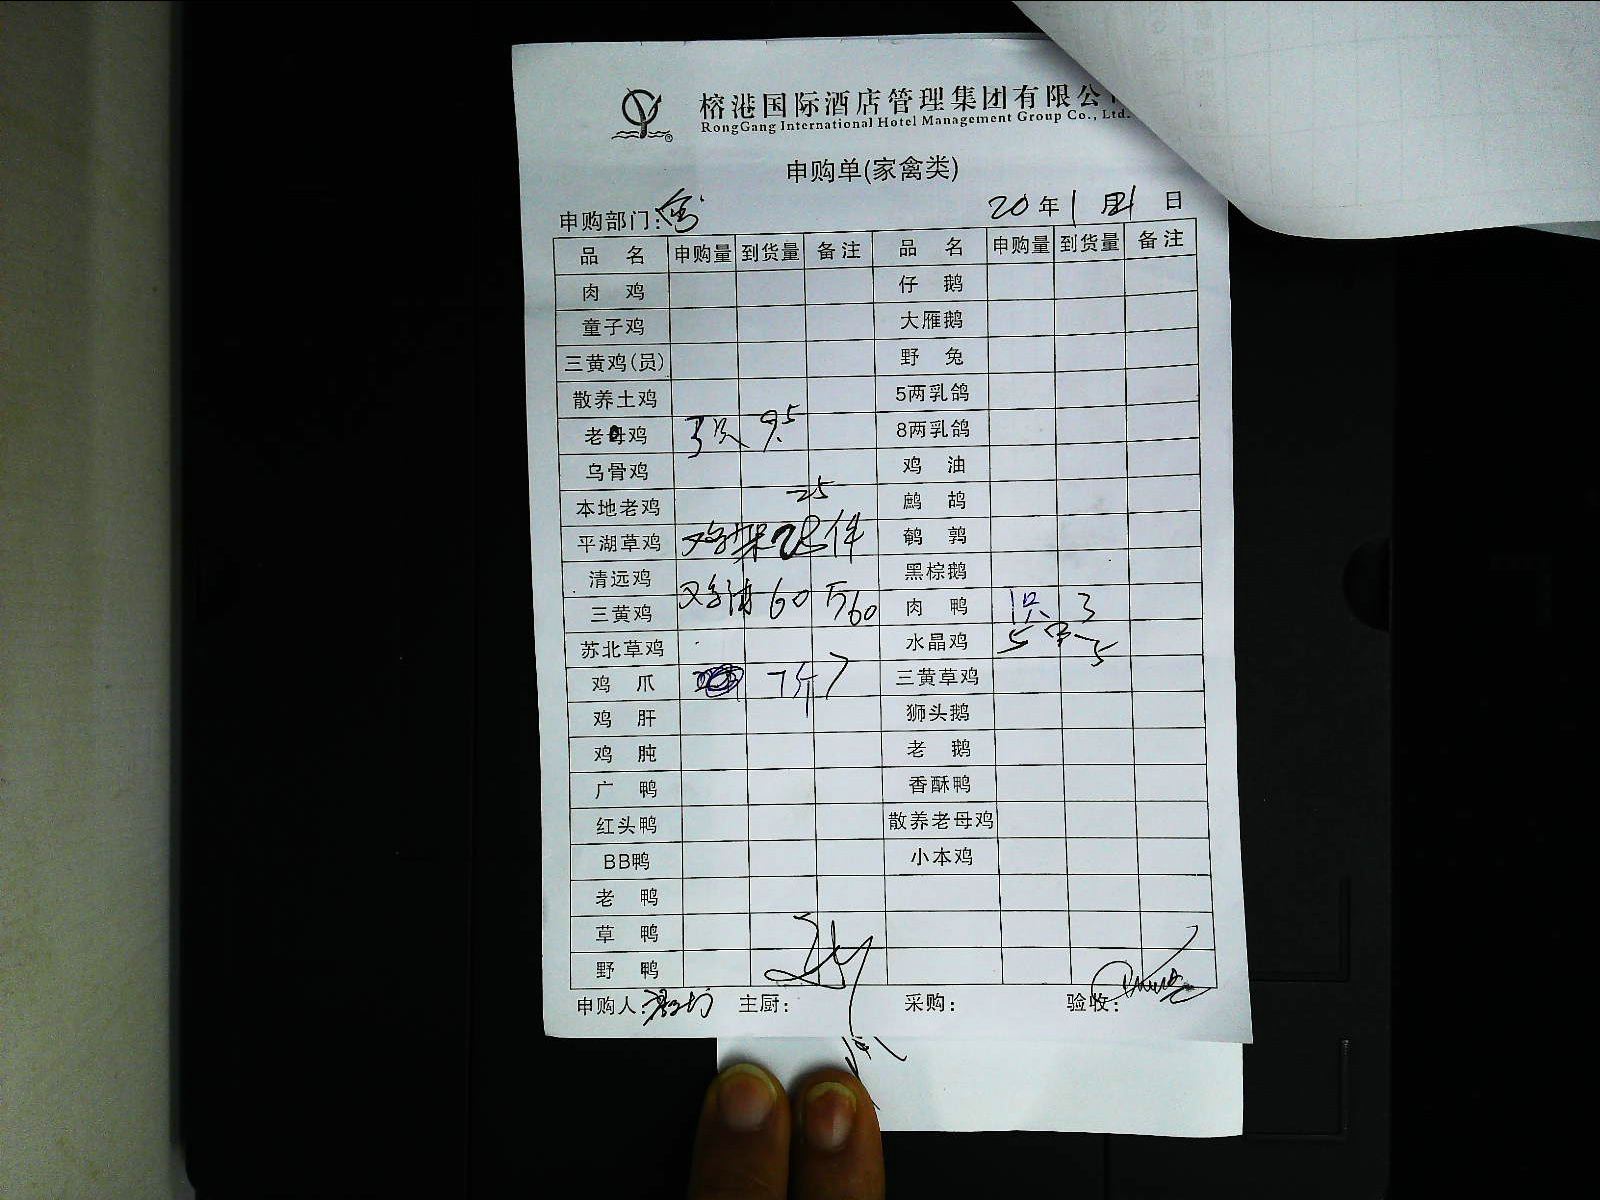 榕港国际酒店管理集团有限公
RongGang International Hotel Management Group Co., Ltd.
申购单(家禽类)
申购部门: 20年1月 日
品 名 申购量 到货量 备注 品 名 申购量 到货量 备注
肉 鸡 仔 鹅
童子鸡 大雁鹅
三黄鸡(员) 野 兔
散养土鸡 5两乳鸽
老母鸡 3只 9.5 8两乳鸽
乌骨鸡 鸡 油
本地老鸡 25 鹧 鸪
平湖草鸡 鸡架 件 鹌 鹑
清远鸡 黑棕鹅
三黄鸡 60斤 60 肉 鸭 1只 3
苏北草鸡 水晶鸡 5 5
鸡 爪 7斤 7 三黄草鸡
鸡 肝 狮头鹅
鸡 肫 老 鹅
广 鸭 香酥鸭
红头鸭 散养老母鸡
BB鸭 小本鸡
老 鸭
草 鸭
野 鸭
申购人: 主厨: 采购: 验收: